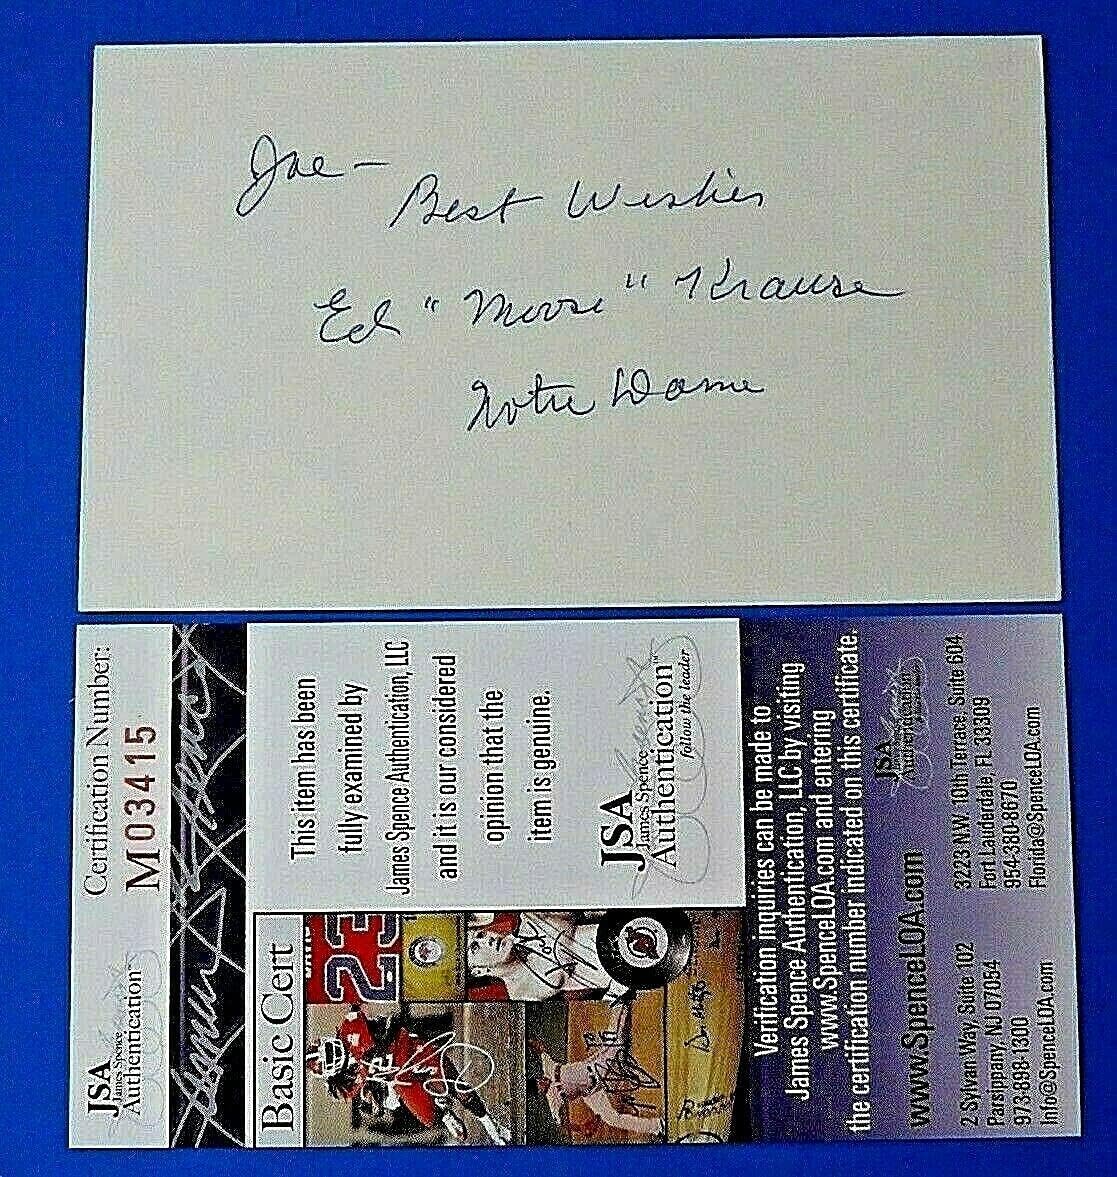 Joe –
Best Wishes
Ed "Moose" Krause
Notre Dame
JSA
James Spence
Authentication™
Certification Number:
M03415
Basic Cert
This item has been
fully examined by
James Spence Authentication, LLC
and it is our considered
opinion that the
item is genuine.
JSA
James Spence
Authentication™
follow the leader
Verification inquiries can be made to
James Spence Authentication, LLC by visiting
www.SpenceLOA.com and entering
the certification number indicated on this certificate.
www.SpenceLOA.com
JSA
Authentication
2 Sylvan Way, Suite 102
Parsippany, NJ 07054
973-898-1300
Info@SpenceLOA.com
3223 N.W. 10th Terrace, Suite 604
Fort Lauderdale, FL 33309
954-380-8670
Florida@SpenceLOA.com
23